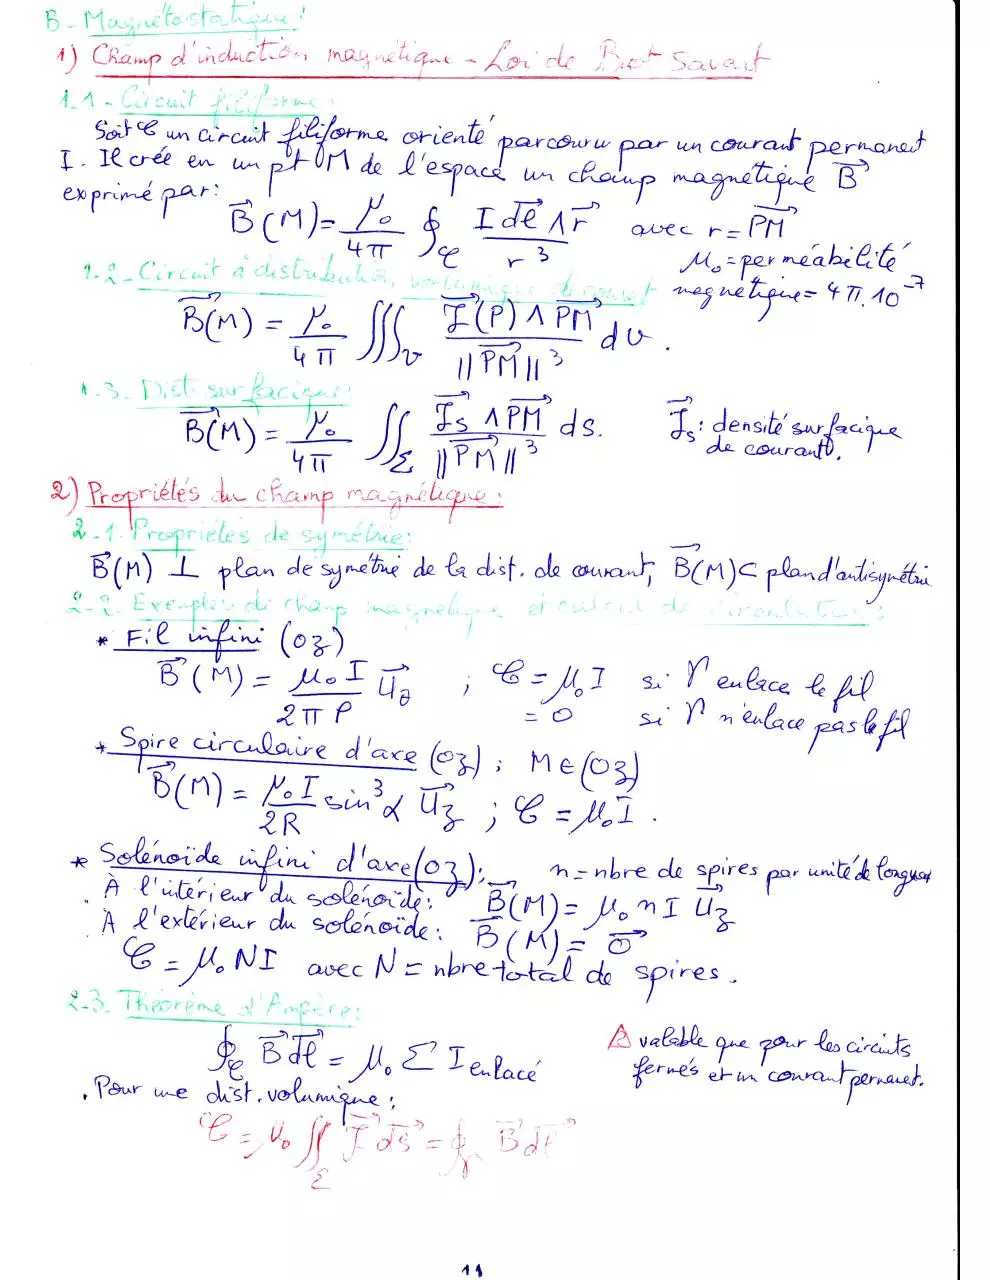 B - Magnétostatique :
1) Champ d'induction magnétique - Loi de Biot Savart
1.1 - Circuit filiforme :
Soit 𝒞 un circuit filiforme orienté parcouru par un courant permanent
I. Il crée en un pt M de l'espace un champ magnétique B⃗
exprimé par :
B⃗(M) = μ₀/4π ∮_𝒞 I dl⃗ ∧ r⃗ / r³ avec r = PM⃗
μ₀ = perméabilité
magnétique = 4π.10⁻⁷
1-2 - Circuit à distribution volumique de courant
B⃗(M) = μ₀/4π ∭_v J⃗(P) ∧ PM⃗ / ||PM⃗||³ dv.
1.3. Dist. surfacique :
B⃗(M) = μ₀/4π ∬_Σ J⃗s ∧ PM⃗ / ||PM⃗||³ ds. J⃗s : densité surfacique
de courant.
2) Propriétés du champ magnétique :
2-1. Propriétés de symétrie :
B⃗(M) ⊥ plan de symétrie de la dist. de courant, B⃗(M) ⊂ plan d'antisymétrie
2-2 Exemples de champ magnétique et calcul de circulation :
* Fil infini (Oz)
B⃗(M) = μ₀I/2πρ U⃗θ ; 𝒞 = μ₀I si Γ enlace le fil
= 0 si Γ n'enlace pas le fil
* Spire circulaire d'axe (Oz) ; M ∈ (Oz)
B⃗(M) = μ₀I/2R sin³α U⃗z ; 𝒞 = μ₀I.
* Solénoïde infini d'axe (Oz) : n = nbre de spires par unité de longueur
. À l'intérieur du solénoïde : B⃗(M) = μ₀nI U⃗z
. À l'extérieur du solénoïde : B⃗(M) = 0⃗
𝒞 = μ₀NI avec N = nbre total de spires.
2-3. Théorème d'Ampère :
∮_𝒞 B⃗ dl⃗ = μ₀ Σ I enlacé
⚠ valable que pour les circuits
fermés et un courant permanent.
. Pour une dist. volumique :
𝒞 = μ₀ ∬_Σ J⃗ ds⃗ = ∮ B⃗ dl⃗
11